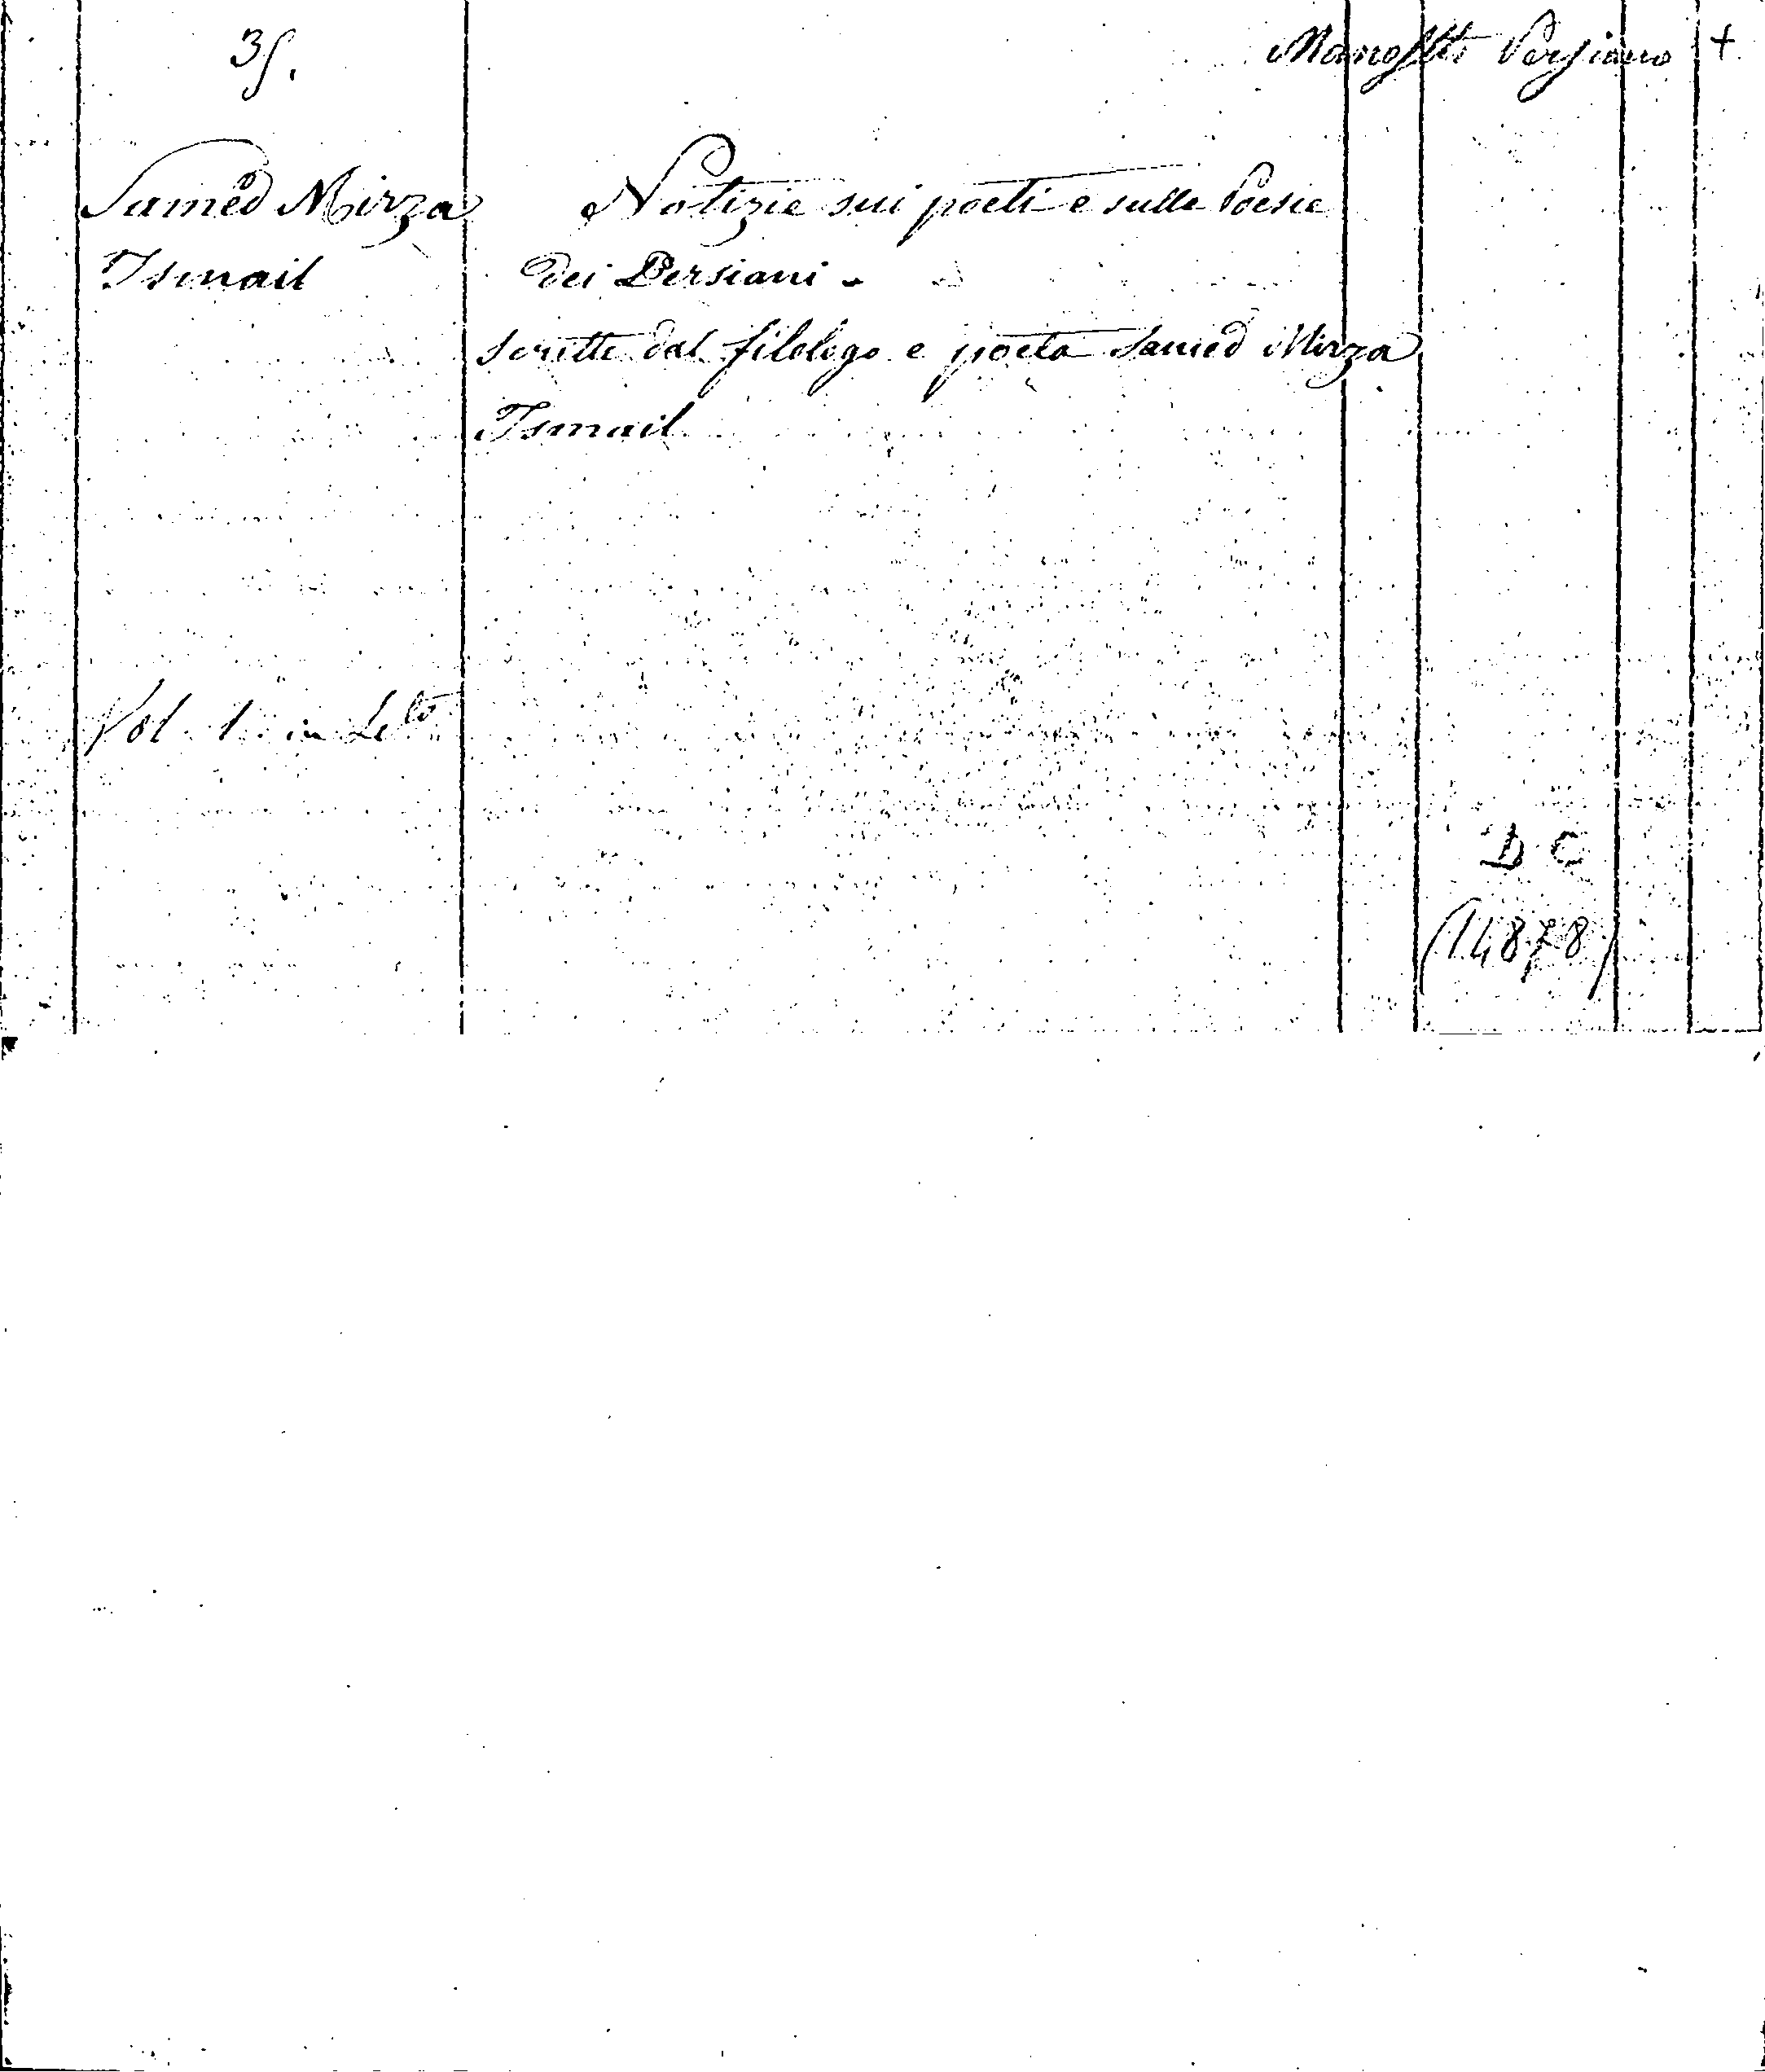 35.
Manosstto Persiano +
Samed Mirza
Ismail
Notizie sui poeti e sulle Poesie
dei Persiani -
scritte dal filologo e poeta Samed Mirza
Ismail
Vol. 1. in
D C
(14878)